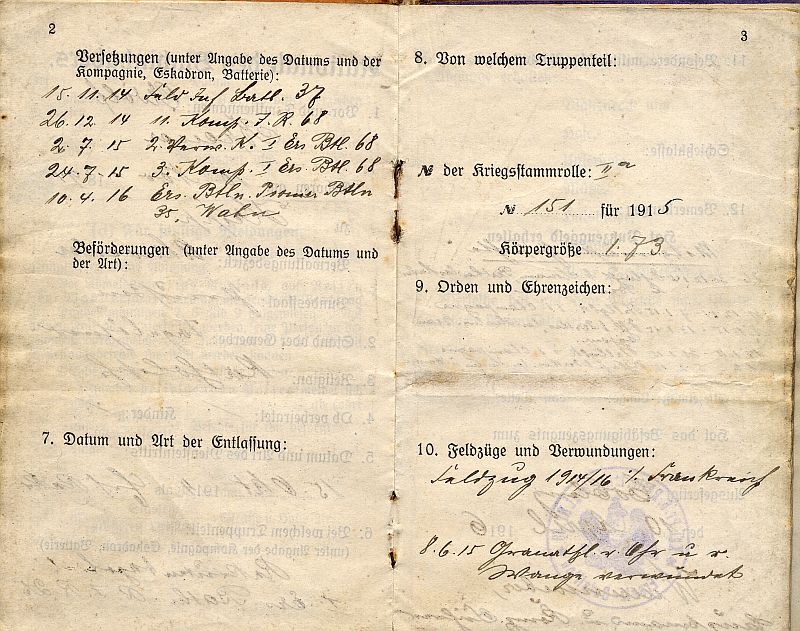 2
Versetzungen (unter Angabe des Datums und der
Kompagnie, Eskadron, Batterie):
15. 11. 14 Feld Inf Batl. 37
26. 12. 14 11. Komp. I. R. 68
2. 7. 15 2. Verw. K. I Ers Btl. 68
24. 7. 15 3. Komp. I Ers. Btl. 68
10. 4. 16 Ers. Btln. Btln
35, Wahn
Beförderungen (unter Angabe des Datums und
der Art):
7. Datum und Art der Entlassung:
3
8. Von welchem Truppenteil:
№ der Kriegsstammrolle: II a
№ 151 für 1915
Körpergröße 1.73
9. Orden und Ehrenzeichen:
10. Feldzüge und Verwundungen:
Feldzug 1914/16 Frankreich
8. 6. 15 Granatspl. r. Ohr u r.
Wange verwundet